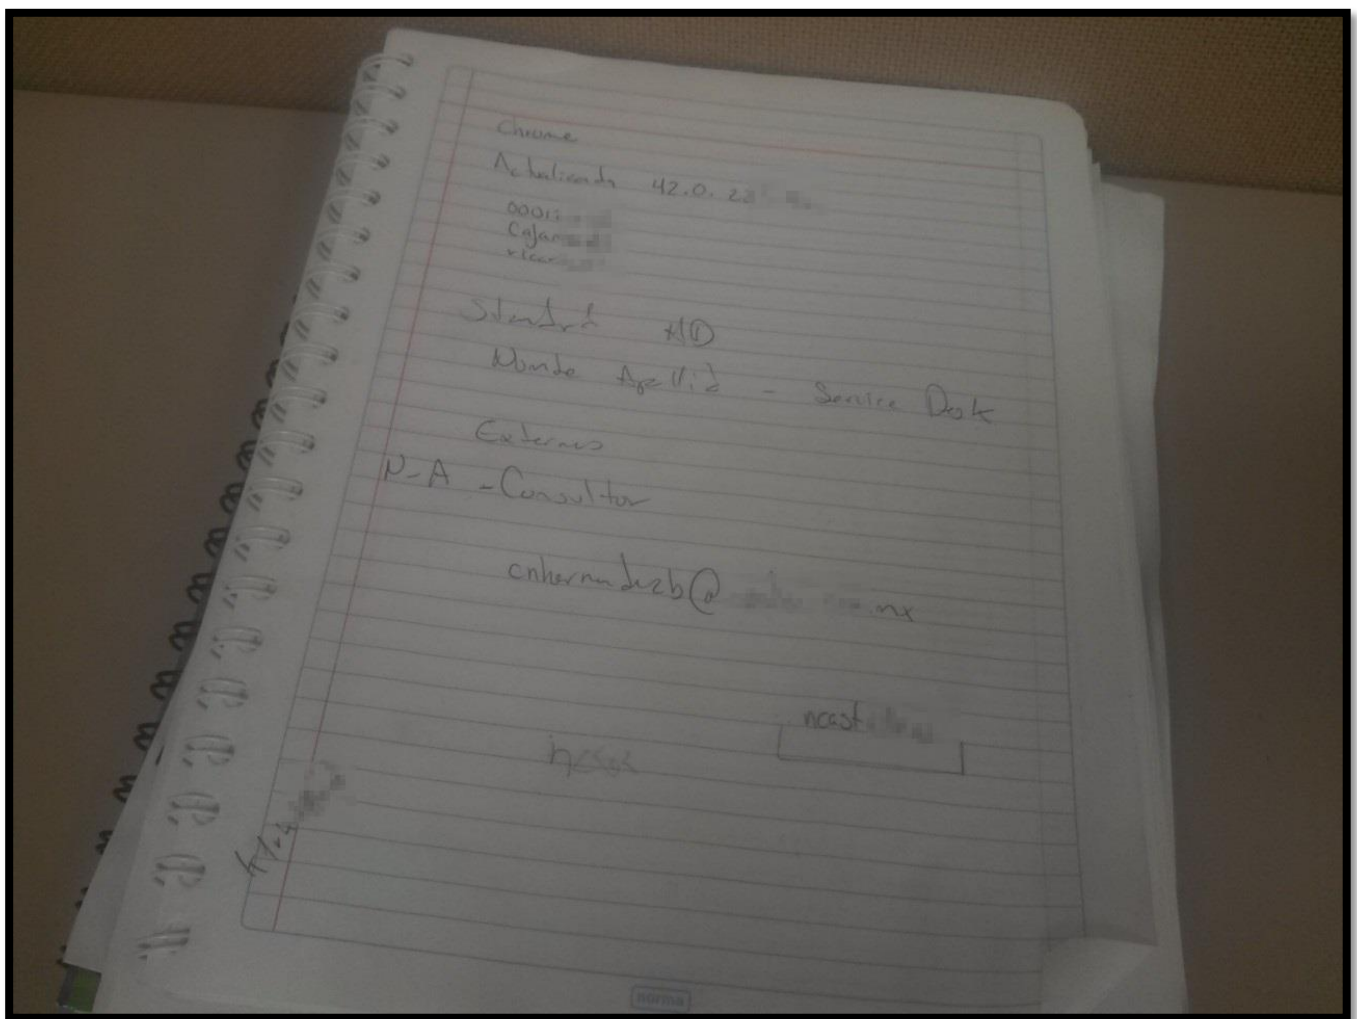 Chrome
Actualizada 42.0.23
00011
Cajar
ricar
Standard AD
Nombre Apellid - Service Desk
Externos
N-A - Consultor
cnhernandezb@ .mx
ncast
norma